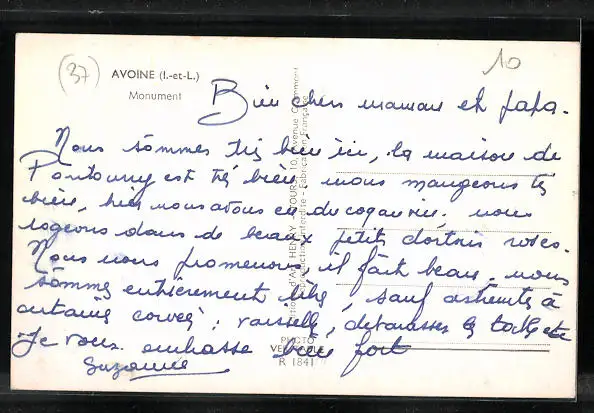 (37)
10
AVOINE (I.-et-L.)
Monument
Bien chers maman et papa.
Nous sommes très bien ici, la maison de
Pontourny est très bien, nous mangeons ts
bien, hier nous avons eu du coq au vin. nous
logeons dans de beaux petits dortoirs roses.
Nous nous promenons, il fait beau, nous
sommes entièrement libres, sauf astreintes à
certaines corvées : vaisselle, débarasser les tables etc
Je vous embrasse bien fort
Suzanne
PHOTO
VERITABLE
R 1841